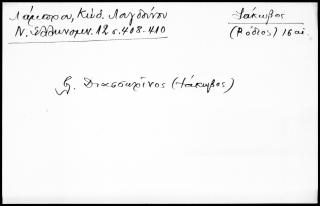 Λάμπρου, Κώδ. Λαγδούνου
Ν. Ἑλληνομν. 12 σ. 408-410
Ἰάκωβος
(Ῥόδιος) 16 αἰ.
Διασσωρῖνος (Ἰάκωβος)